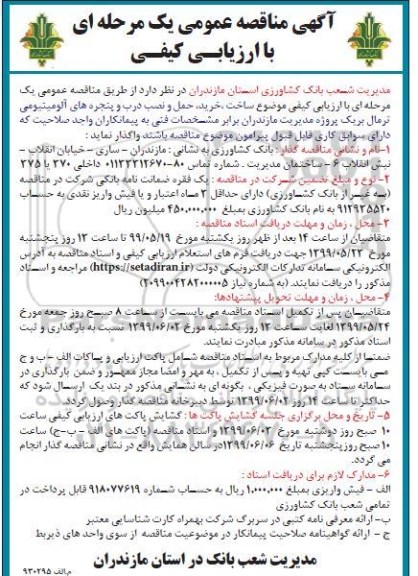 آگهی مناقصه عمومی یک مرحله ای
با ارزیابی کیفی
مدیریت شعب بانک کشاورزی استان مازندران در نظر دارد از طریق مناقصه عمومی یک
مرحله ای با ارزیابی کیفی موضوع ساخت ،خرید، حمل و نصب درب و پنجره های آلومینیومی
ترمال بریک پروژه مدیریت مازندران برابر مشخصات فنی به پیمانکاران واجد صلاحیت که
دارای سوابق کاری قابل قبول پیرامون موضوع مناقصه باشند واگذار نماید :
۱-نام و نشانی مناقصه گذار : بانک کشاورزی به نشانی : مازندران – ساری – خیابان انقلاب –
نبش انقلاب ۶ – ساختمان مدیریت . شماره تماس ۸۰-۰۱۱۳۳۳۱۲۶۷۰ داخلی ۲۷۰ یا ۲۷۵
۲- نوع و مبلغ تضمین شرکت در مناقصه : یک فقره ضمانت نامه بانکی شرکت در مناقصه
(به غیر از بانک کشاورزی) دارای حداقل ۳ ماه اعتبار و یا فیش واریز نقدی به حساب
۹۱۲۹۳۵۵۲۰ به نام بانک کشاورزی بمبلغ ۴۵۰,۰۰۰,۰۰۰ میلیون ریال
۳- محل ، زمان و مهلت دریافت اسناد مناقصه :
متقاضیان از ساعت ۱۴ بعد از ظهر روز یکشنبه مورخ ۹۹/۰۵/۱۹ تا ساعت ۱۲ روز پنتجشنبه
مورخ ۱۳۹۹/۰۵/۲۳ جهت دریافت فرم های استعلام ارزیابی کیفی و اسناد مناقصه به آدرس
الکترونیکی سامانه تدارکات الکترونیکی دولت (https://setadiran.ir) مراجعه و اسناد
مذکور را دریافت نمایند. (به شماره نیاز ۲۰۹۹۰۰۴۲۸۲۰۰۰۰۰۵)
۴- محل ، زمان و مهلت تحویل پیشنهادها:
متقاضیان پس از تکمیل اسناد مناقصه می بایست از ساعت ۸ صبح روز جمعه مورخ
۱۳۹۹/۰۵/۲۴ لغایت ساعت ۱۲ روز یکشنبه مورخ ۱۳۹۹/۰۶/۰۲ نسبت به بارگذاری و ثبت
اسناد مذکور در سامانه مذکور مبادرت نمایند.
ضمنا از کلیه مدارک مربوط به اسناد مناقصه شامل پاکت ارزیابی و پاکات الف -ب و ج
می بایست کپی تهیه و پس از تکمیل ، به مهر و امضا مجاز ممهور و ضمن بارگذاری در
سامانه ستاد به صورت فیزیکی ، بگونه ای به نشانی مذکور در بند یک ارسال شود که
حداکثر تا ساعت ۱۴ روز ۱۳۹۹/۰۶/۰۲ توسط دبیرخانه مناقصه گذار وصول گردد.
۵- تاریخ و محل برگزاری جلسه گشایش پاکت ها : گشایش پاکت های ارزیابی کیفی ساعت
۱۰ صبح روز دوشنبه مورخ ۱۳۹۹/۰۶/۰۳ و اسناد مناقصه (پاکت های الف -ب-ج) ساعت
۱۰ صبح روز پنجشنبه تاریخ ۱۳۹۹/۰۶/۰۶ در سالن همایش واقع در نشانی مناقصه گذار انجام
می گردد.
۶- مدارک لازم برای دریافت اسناد :
الف - فیش واریزی بمبلغ ۱,۰۰۰,۰۰۰ ریال به حساب شماره ۹۱۸۰۷۷۶۱۹ قابل پرداخت در
تمامی شعب بانک کشاورزی
ب- ارائه معرفی نامه کتبی در سربرگ شرکت بهمراه کارت شناسایی معتبر
ج - ارائه گواهینامه صلاحیت پیمانکار در موضوعیت مناقصه از سوی واحد های ذیربط
مدیریت شعب بانک در استان مازندران
م.الف ۹۳۰۲۹۵